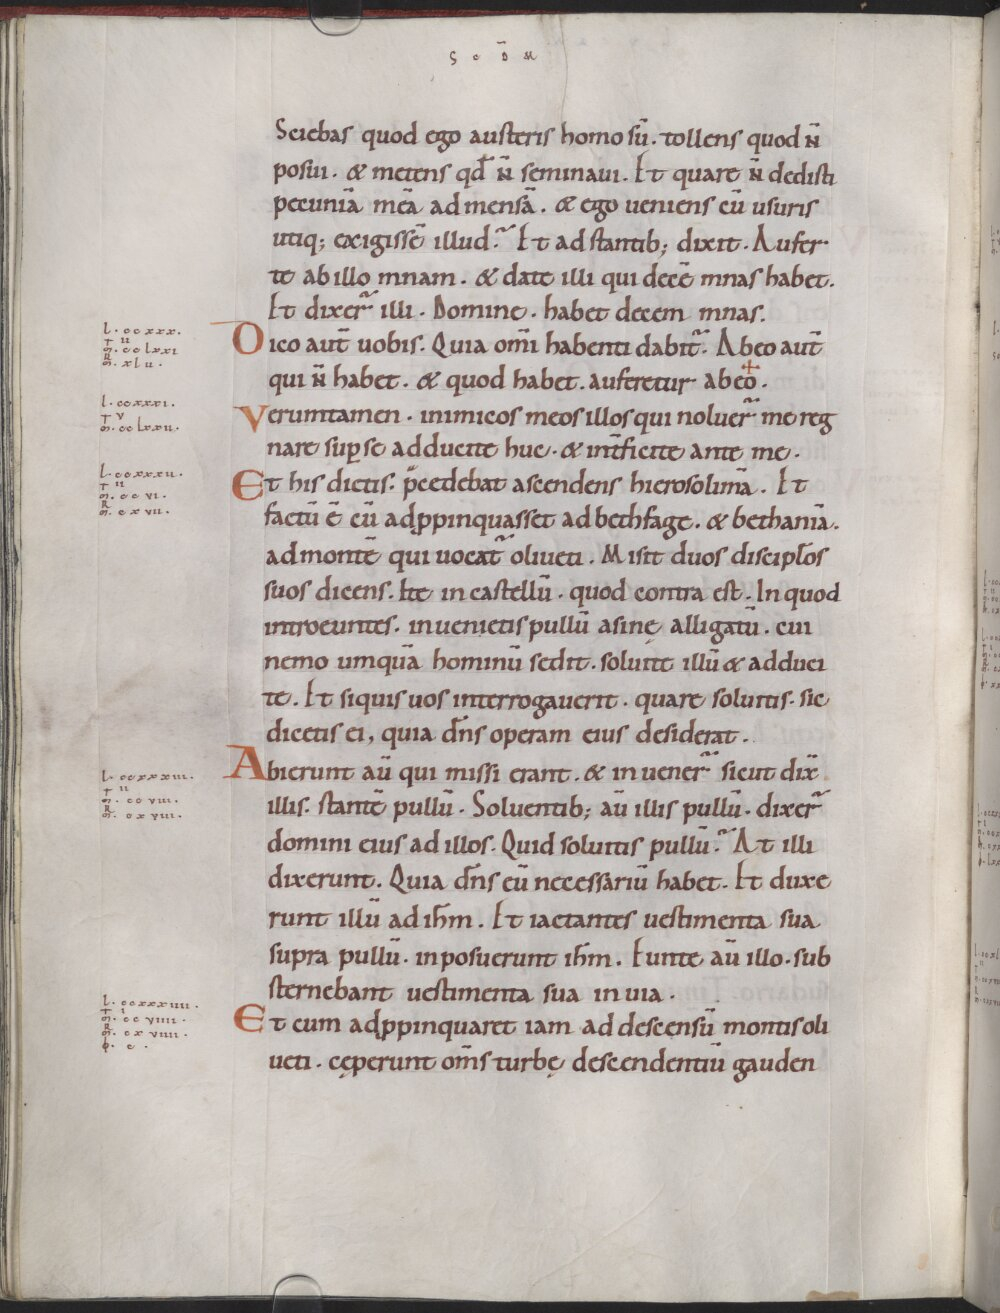 s c d̄ m
Sciebas quod ego austeris homo sū. tollens quod n̄
posui. & metens qd̄ n̄ seminaui. Et quare n̄ dedisti
pecuniā meā ad mensā. & ego ueniens cū usuris
utiq; exigissē illud. Et ad stantib; dixit. Aufer
te ab illo mnam. & date illi qui decē mnas habet.
Et dixer̄ illi. Domine. habet decem mnas.
l. ccxxx.
m. cclxxi
m. xlu.
Dico aut̄ uobis. Quia om̄i habenti dabit̄. Abeo aut̄
qui n̄ habet. & quod habet. auferetur abeo.
l. ccxxxi.
m. cclxxii.
Verumtamen. inimicos meos illos qui noluer̄ me reg
nare sup se adducite huc. & int̄ficite ante me.
l. ccxxxii.
m. cc vi.
m. cxvii.
Et his dictis. p̄cedebat ascendens hierosolimā. Et
factū ē cū adppinquasset ad bethfage. & bethaniā.
ad montē qui uocat̄ oliueti. Misit duos discipl̄os
suos dicens. Ite in castellū. quod contra est. In quod
introeuntes. inuenietis pullū asinę alligatū. cui
nemo umquā hominū sedit. soluite illū & adduci
te. Et siquis uos interrogauerit. quare soluitis. sic
dicetis ei, quia dn̄s operam eius desiderat.
l. ccxxxiii.
m. cc viii.
m. cxviii.
Abierunt aū qui missi erant. & inuener̄ sicut dix̄
illis. stantē pullū. Soluentib; aū illis pullū. dixer̄
domini eius ad illos. Quid soluitis pullū. At illi
dixerunt. Quia dn̄s eū necessariū habet. Et duxe
runt illū ad ih̄m. Et iactantes uestimenta sua
supra pullū. inposuerunt ih̄m. Eunte aū illo. sub
sternebant uestimenta sua in uia.
l. ccxxxiiii.
m. cc viiii.
m. cxviiii.
Et cum adppinquaret iam ad descensū montis oli
ueti. cęperunt om̄s turbę descendentiū gauden